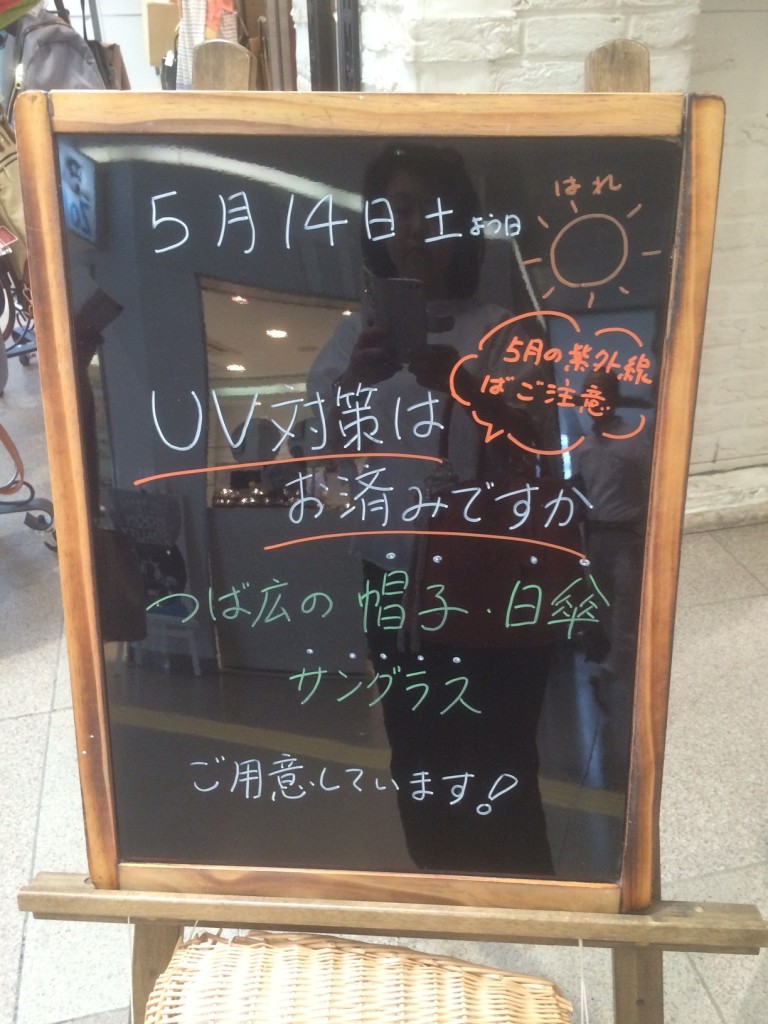 はれ
5月14日 土よう日
5月の紫外線
ばご注意
UV対策は
お済みですか
つば広の 帽子・日傘
サングラス
ご用意しています!